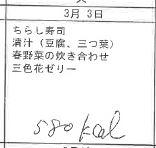 3月 3日
ちらし寿司
清汁（豆腐、三つ葉）
春野菜の炊き合わせ
三色花ゼリー
580 kcal